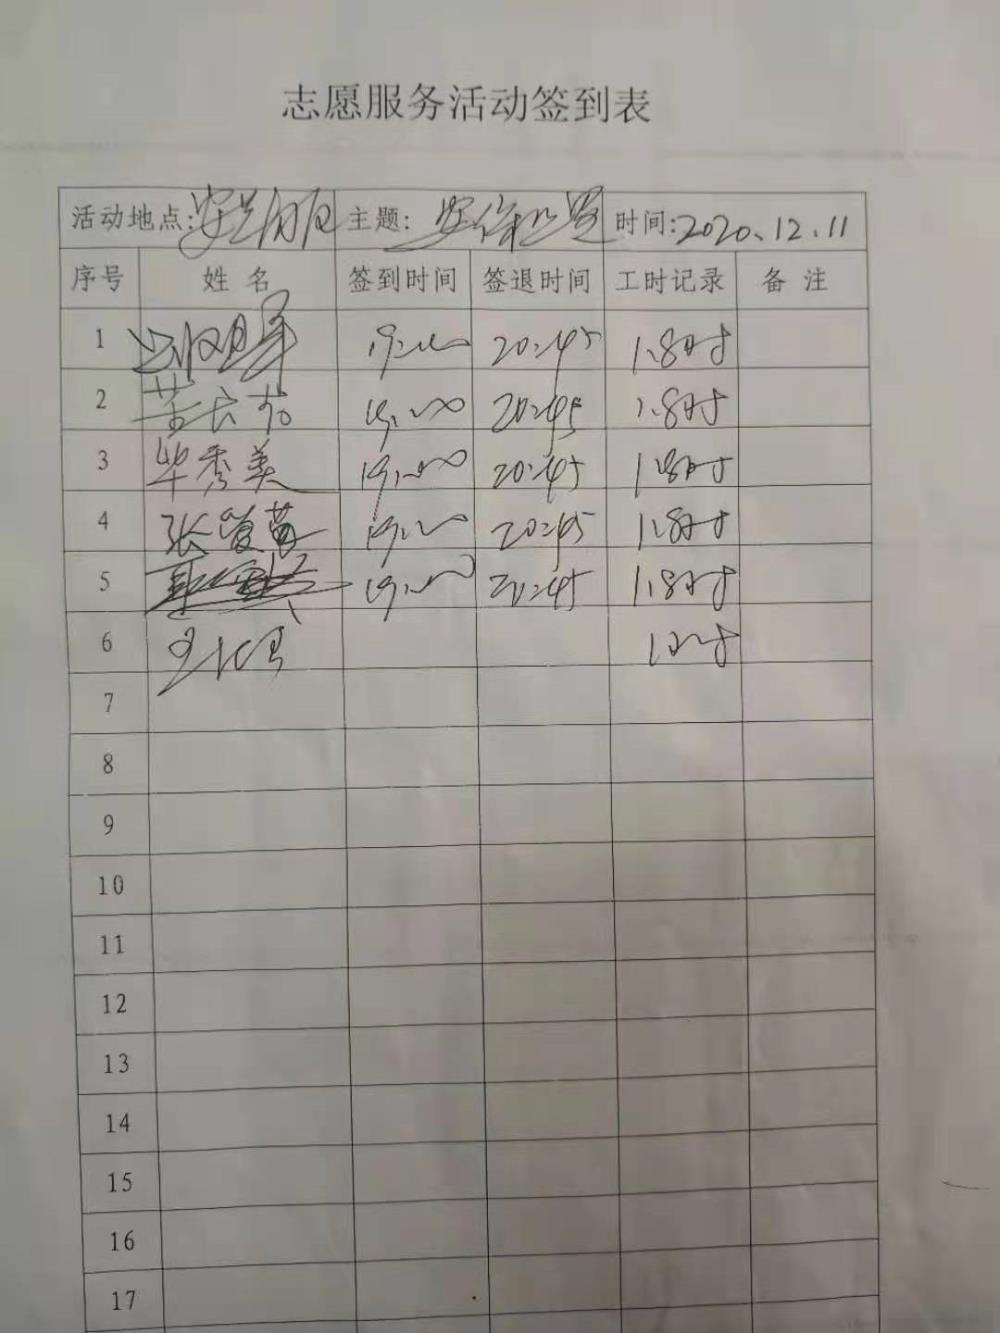 志愿服务活动签到表
活动地点: 主题: 时间:2020.12.11
序号 姓名 签到时间 签退时间 工时记录 备注
1 19:00 20:45 1.8时
2 19:00 20:45 1.8时
3 毕秀美 19:00 20:45 1.8时
4 19:00 20:45 1.8时
5 19:00 20:45 1.8时
6
7
8
9
10
11
12
13
14
15
16
17